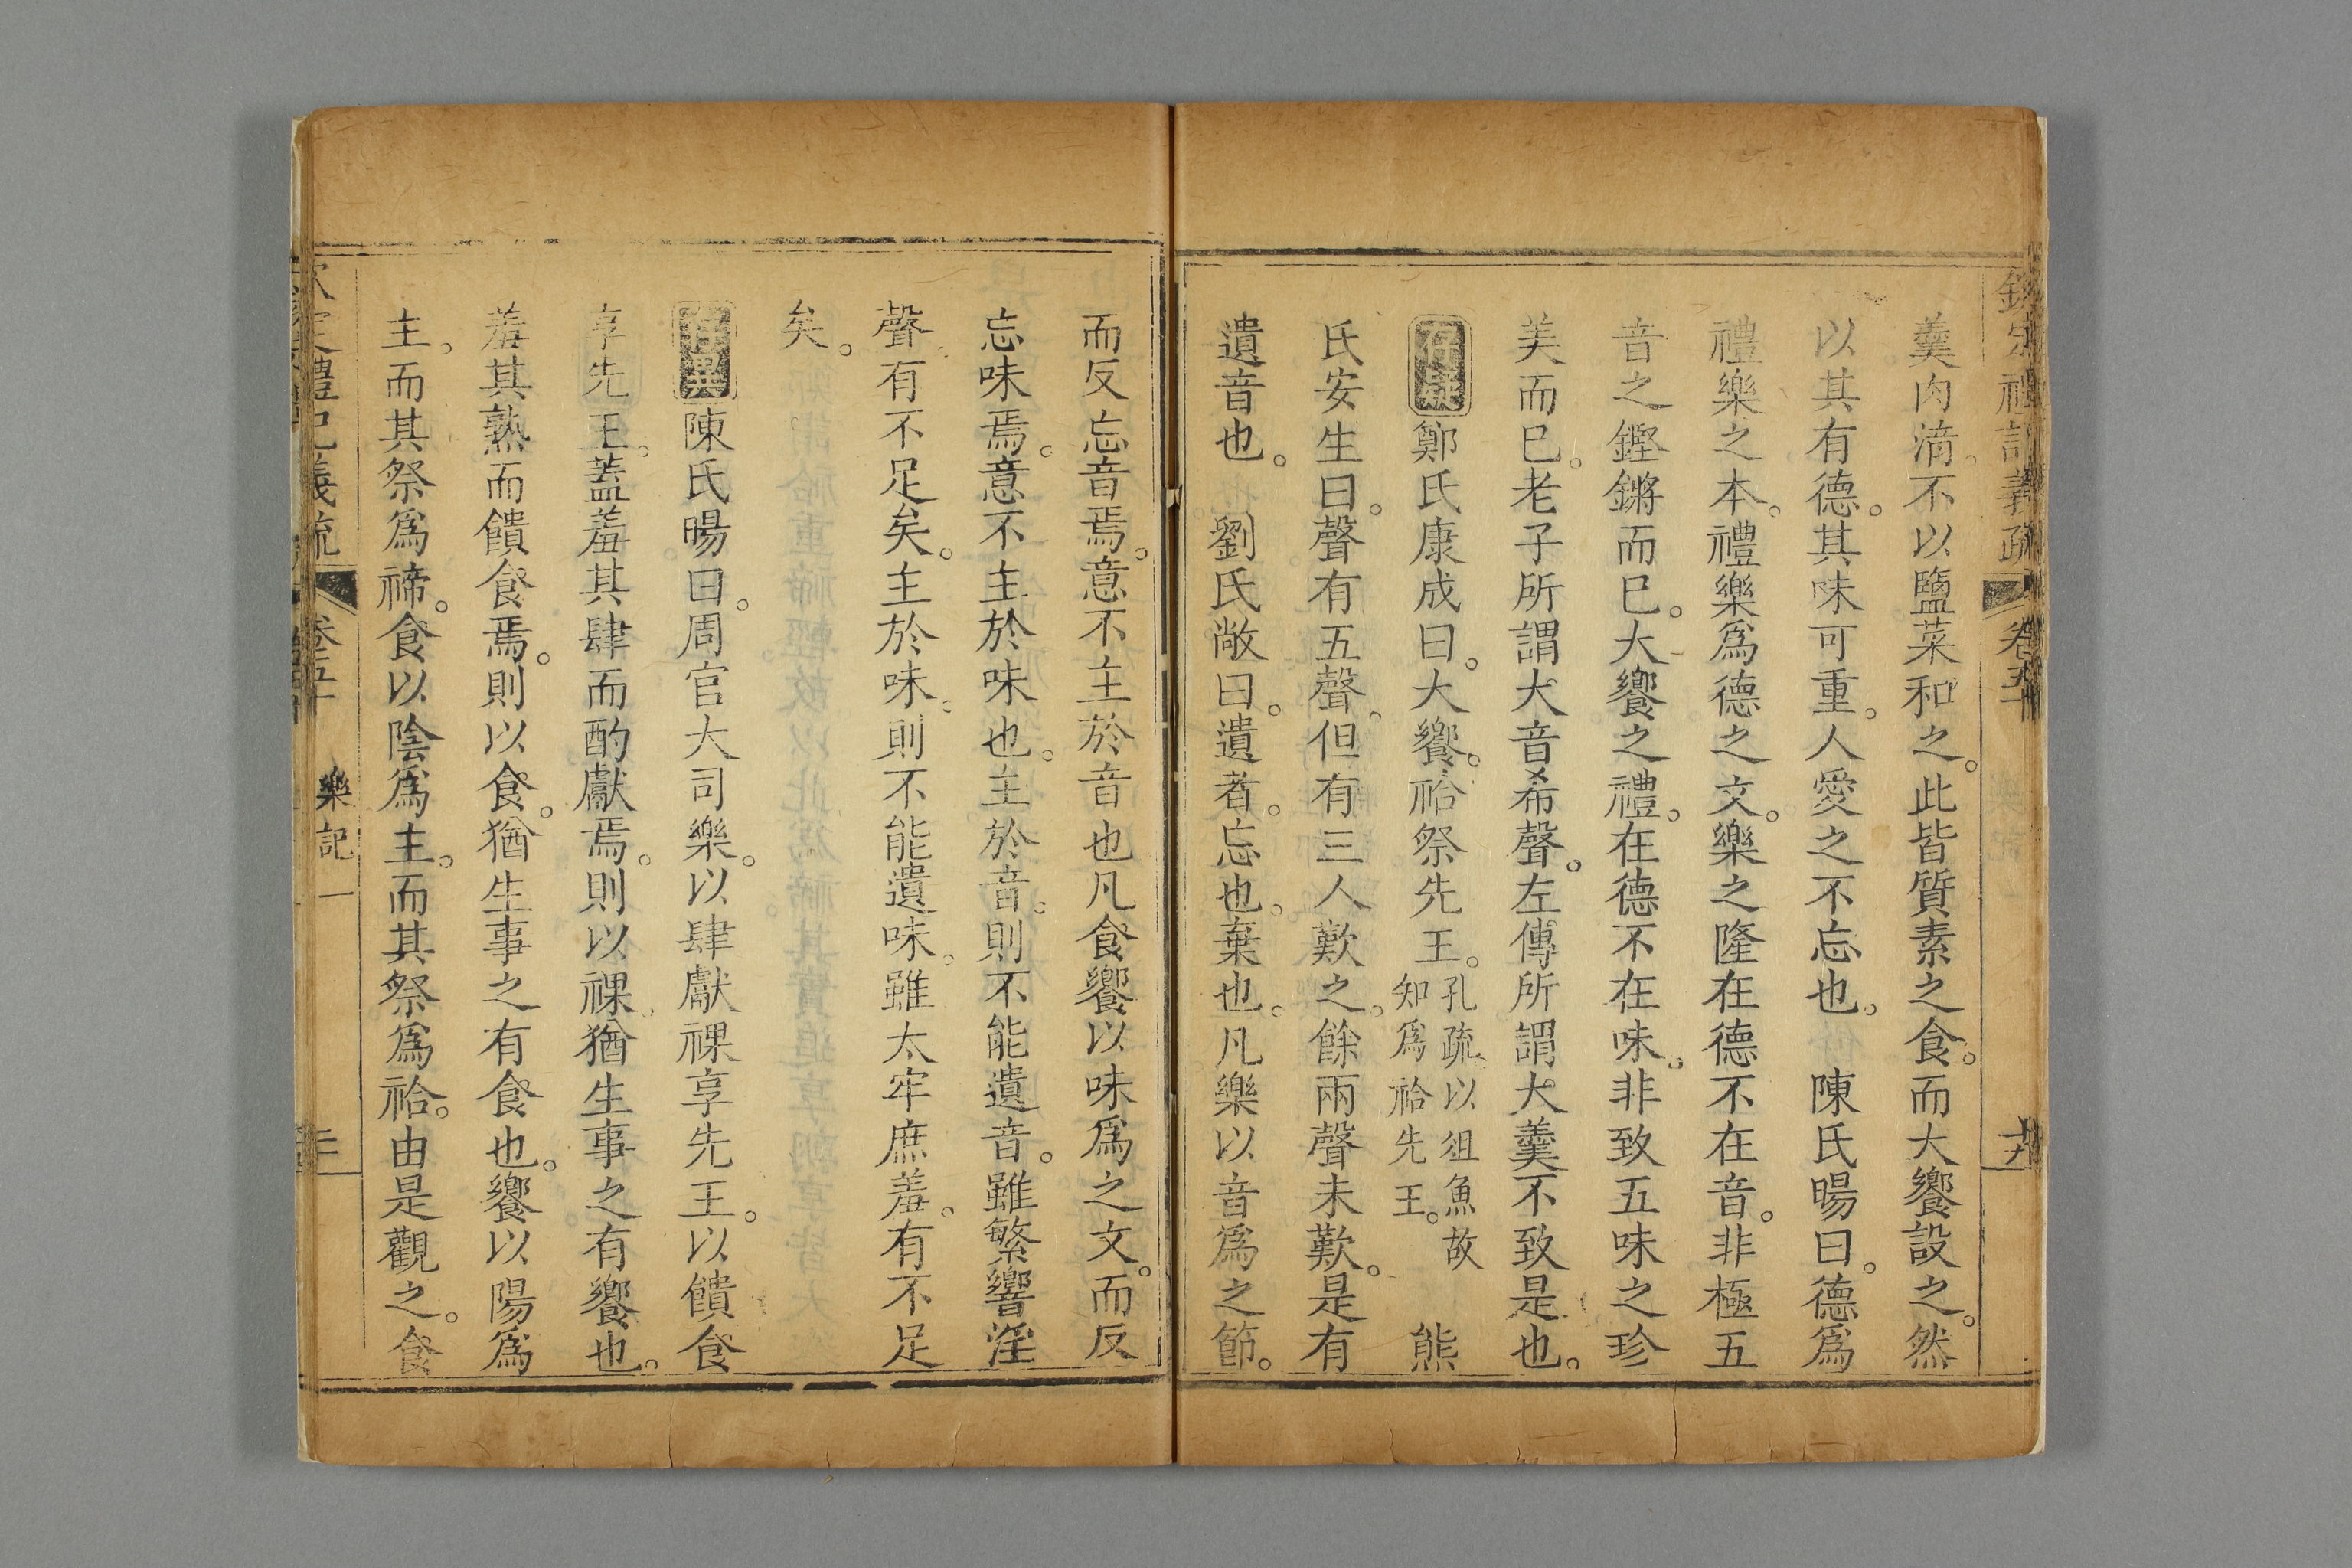 羹肉湇。不以鹽菜和之。此皆質素之食。而大饗設之。然
以其有德。其味可重。人愛之不忘也。陳氏暘曰。德爲
禮樂之本。禮樂爲德之文。樂之隆在德不在音。非極五
音之鏗鏘而巳。大饗之禮。在德不在味。非致五味之珍
美而巳。老子所謂大音希聲。左傳所謂大羹不致是也。
存疑鄭氏康成曰。大饗。祫祭先王。孔疏。以俎魚故知爲祫先王。熊
氏安生曰。聲有五聲。但有三人歎之。餘兩聲未歎。是有
遺音也。劉氏敞曰。遺者。忘也。棄也。凡樂以音爲之節。
而反忘音焉。意不主於音也凡食饗以味爲之文。而反
忘味焉。意不主於味也。主於音。則不能遺音。雖繁響淫
聲有不足矣。主於味。則不能遺味。雖太牢庶羞。有不足
矣。
存異陳氏暘曰。周官大司樂。以肆獻祼享先王。以饋食
享先王。蓋羞其肆而酌獻焉。則以祼。猶生事之有饗也。
羞其熟而饋食焉。則以食。猶生事之有食也。饗以陽爲
主。而其祭爲禘。食以陰爲主。而其祭爲祫。由是觀之。食
樂記一